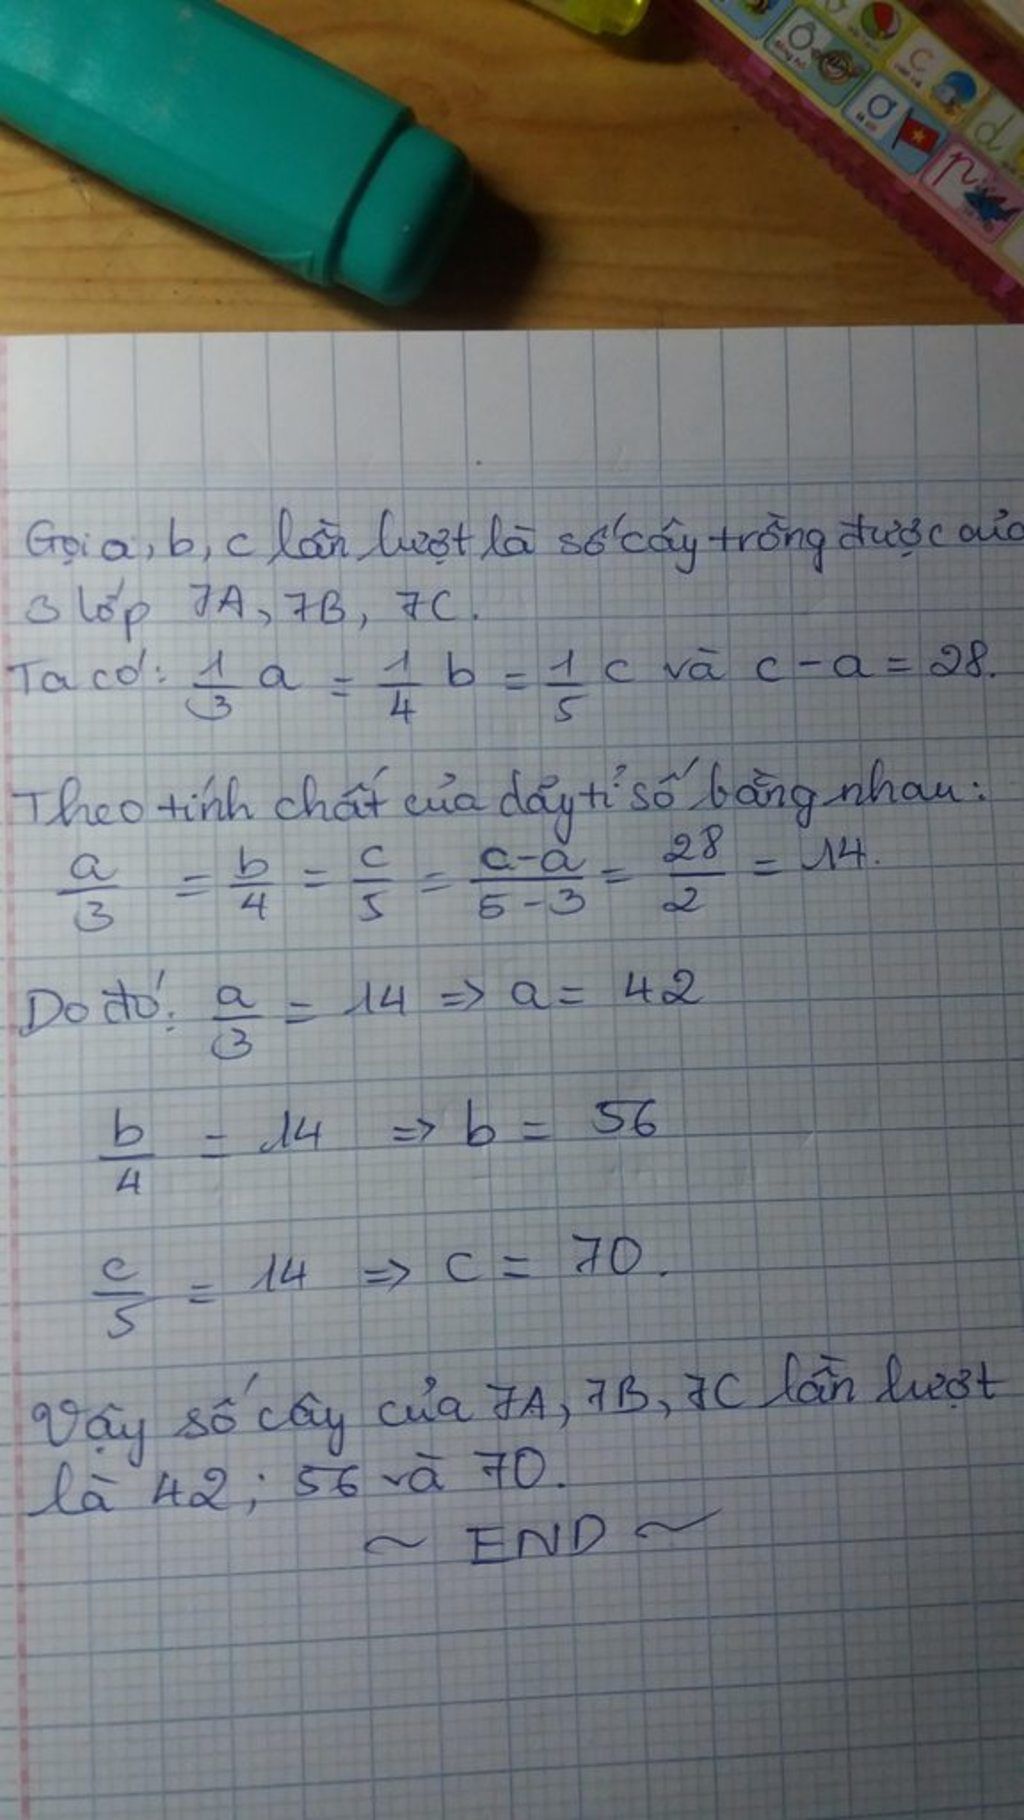 Ô
ơ
c
d
p
Gọi a, b, c lần lượt là số cây trồng được của
3 lớp 7A, 7B, 7C.
Ta có: 1/3 a = 1/4 b = 1/5 c và c - a = 28.
Theo tính chất của dãy tỉ số bằng nhau:
a/3 = b/4 = c/5 = c-a/5-3 = 28/2 = 14.
Do đó: a/3 = 14 => a = 42
b/4 = 14 => b = 56
c/5 = 14 => c = 70.
Vậy số cây của 7A, 7B, 7C lần lượt
là 42; 56 và 70.
~ END ~